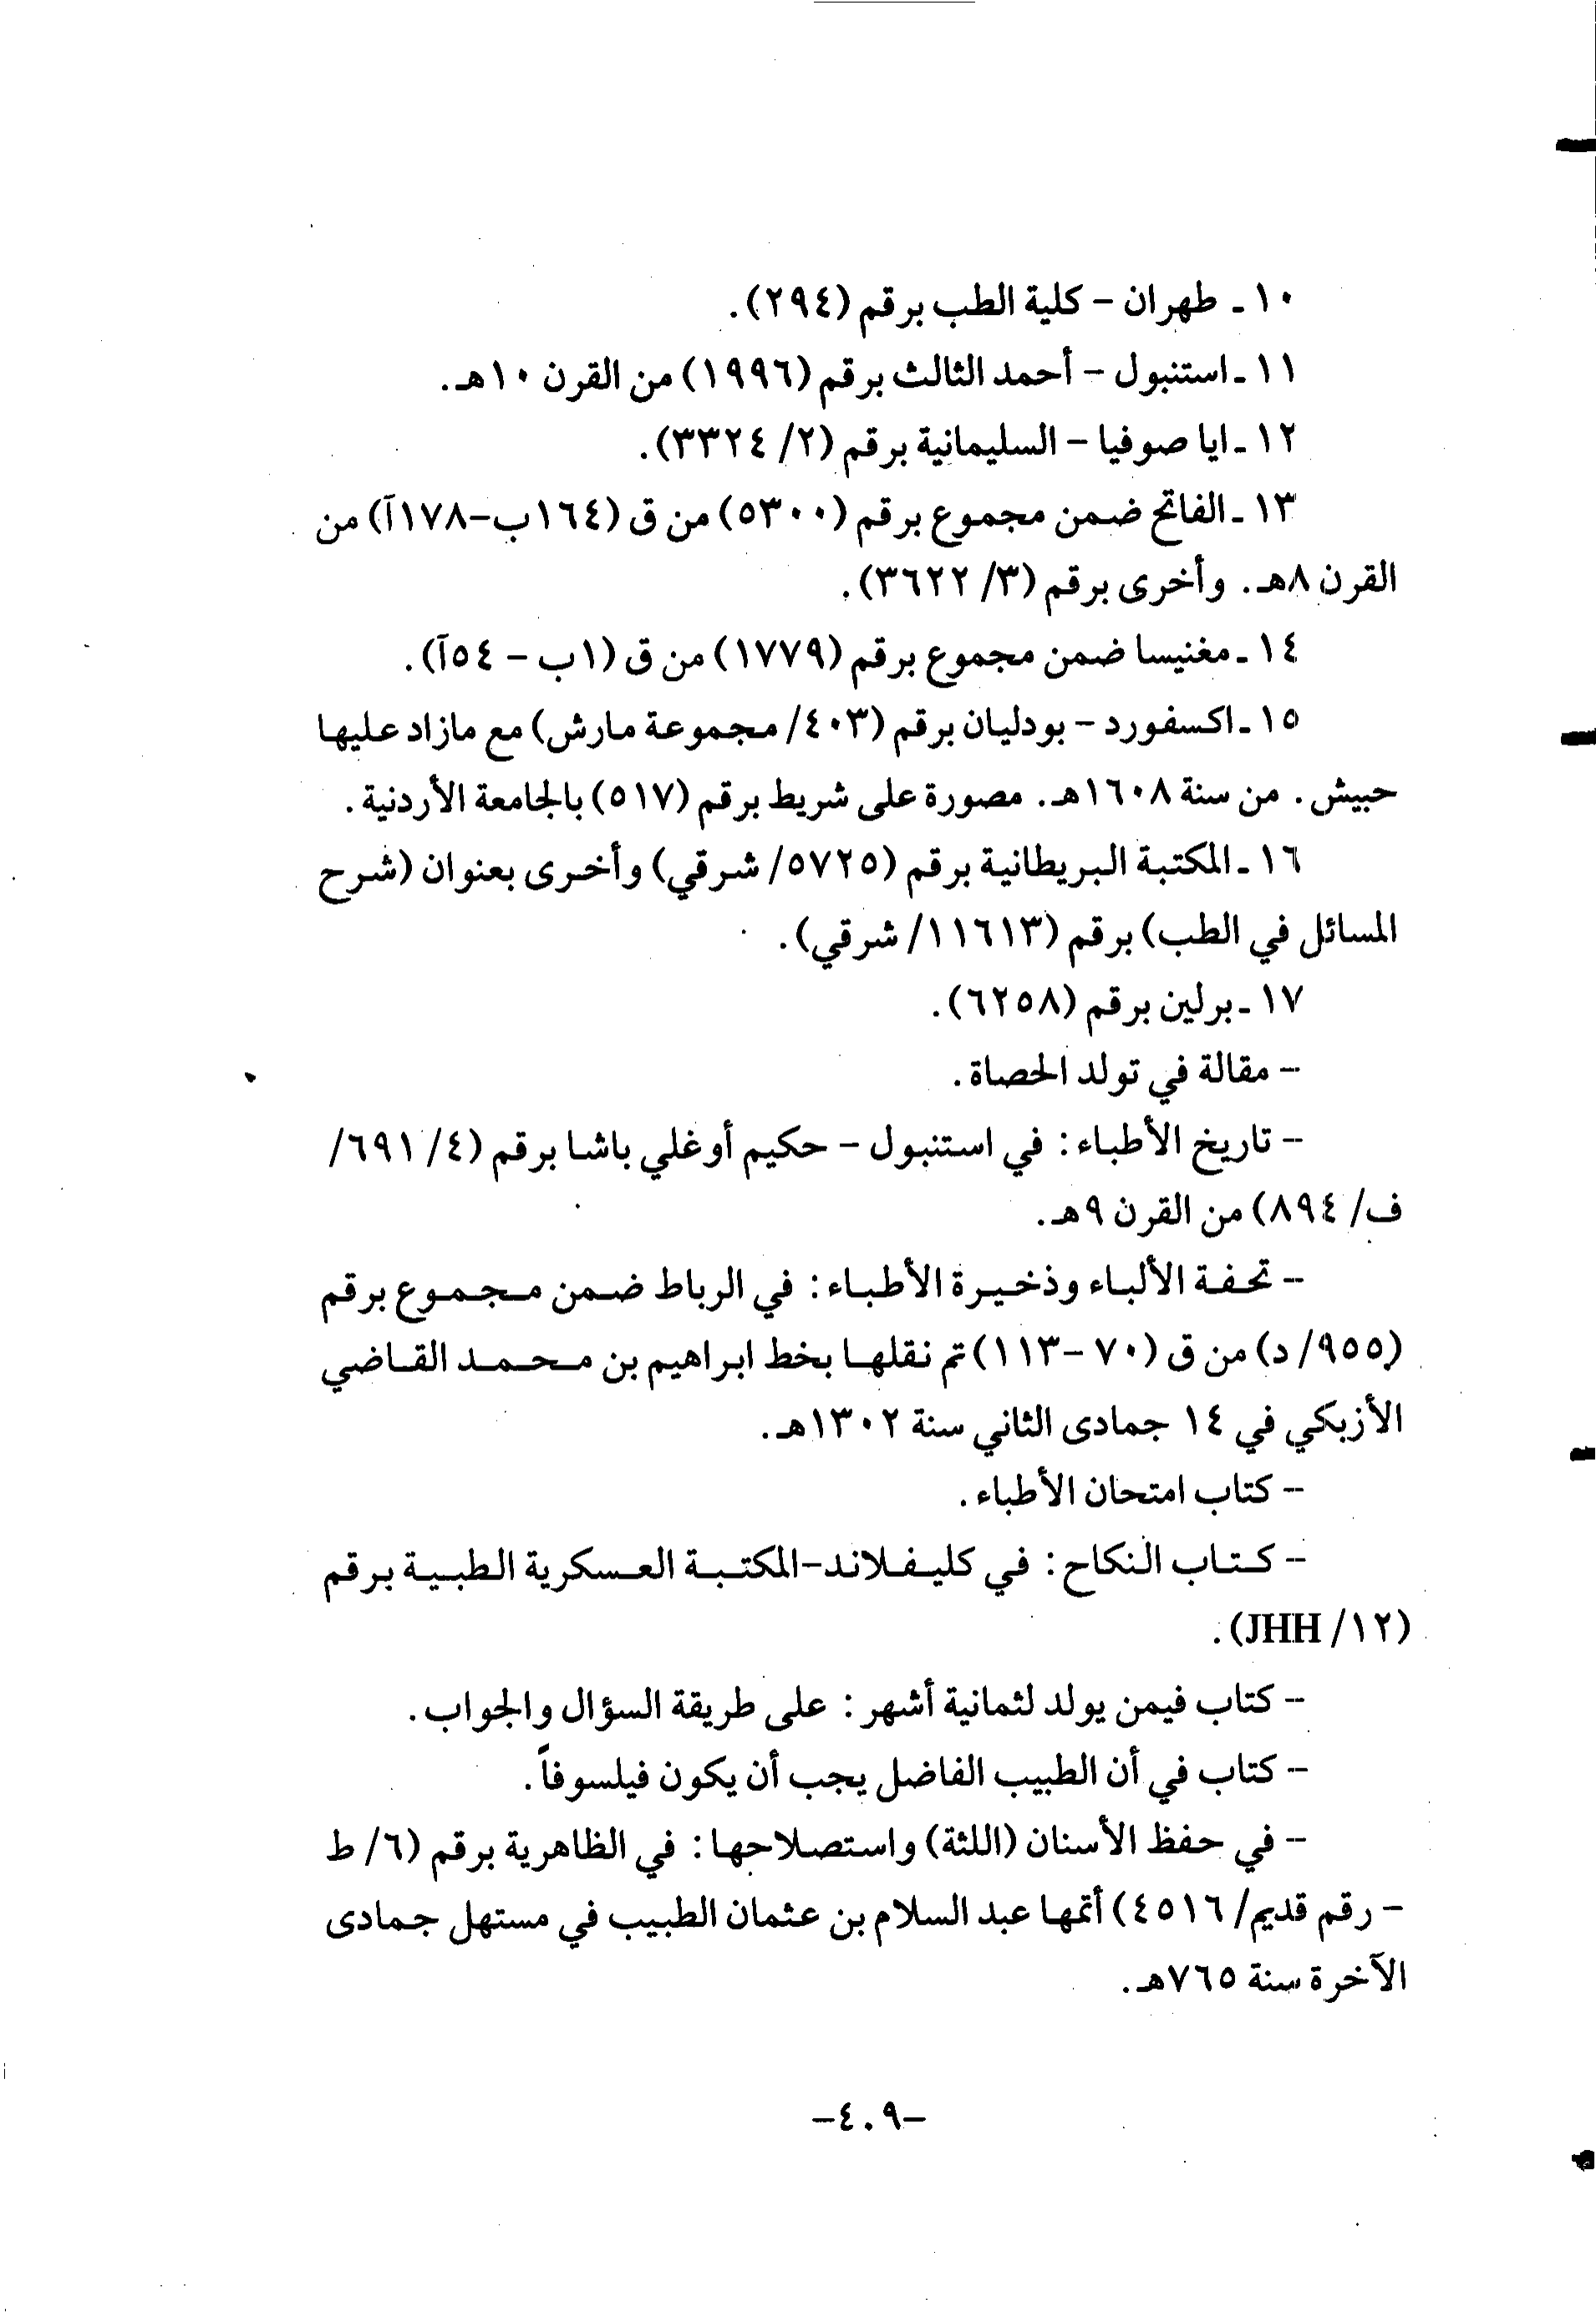 ١٠ ـ طهران - كلية الطب برقم (٢٩٤).
١١ ـ استنبول - أحمد الثالث برقم (١٩٩٦) من القرن ١٠هـ.
١٢ ـ ايا صوفيا - السليمانية برقم (٢/ ٣٣٢٤).
١٣ ـ الفاتح ضمن مجموع برقم (٥٣٠٠) من ق (١٦٤ب-١٧٨آ) من
القرن ٨هـ. وأخرى برقم (٣/ ٣٦٢٢).
١٤ ـ مغنيسا ضمن مجموع برقم (١٧٧٩) من ق (١ب - ٥٤آ).
١٥ ـ اكسفورد - بودليان برقم (٤٠٣/ مجموعة مارش) مع مازاد عليها
حبيش. من سنة ١٦٠٨هـ. مصورة على شريط برقم (٥١٧) بالجامعة الأردنية.
١٦ ـ المكتبة البريطانية برقم (٥٧٢٥/ شرقي) وأخرى بعنوان (شرح
المسائل في الطب) برقم (١١٦١٣/ شرقي).
١٧ ـ برلين برقم (٦٢٥٨).
- مقالة في تولد الحصاة.
- تاريخ الأطباء: في استنبول - حكيم أوغلي باشا برقم (٤/ ٦٩١/
ف/ ٨٩٤) من القرن ٩هـ.
- تحفة الألباء وذخيرة الأطباء: في الرباط ضمن مجموع برقم
(٩٥٥/ د) من ق (٧٠-١١٣) تم نقلها بخط ابراهيم بن محمد القاضي
الأزبكي في ١٤ جمادى الثاني سنة ١٣٠٢هـ.
- كتاب امتحان الأطباء.
- كتاب النكاح: في كليفلاند-المكتبة العسكرية الطبية برقم
(١٢/ JHH).
- كتاب فيمن يولد لثمانية أشهر: على طريقة السؤال والجواب.
- كتاب في أن الطبيب الفاضل يجب أن يكون فيلسوفاً.
- في حفظ الأسنان (اللثة) واستصلاحها: في الظاهرية برقم (٦/ ط
- رقم قديم/ ٤٥١٦) أتمها عبد السلام بن عثمان الطبيب في مستهل جمادى
الآخرة سنة ٧٦٥هـ.
-٤٠٩-